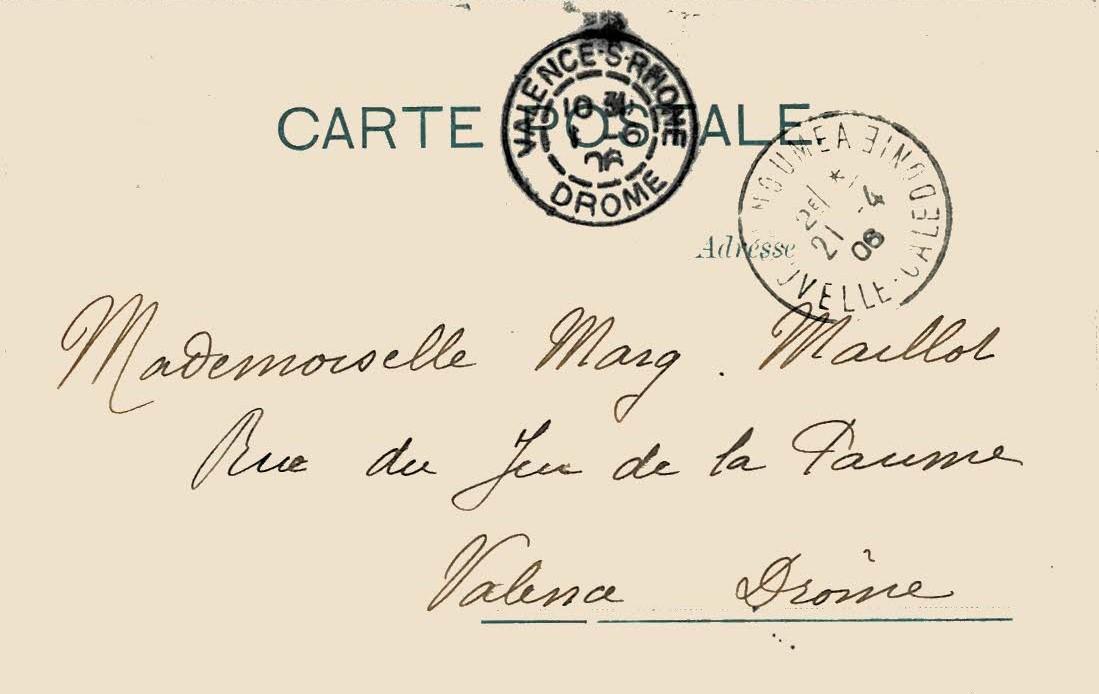 CARTE POSTALE
VALENCE-S-RHONE
10
1 -6
06
DROME
NOUMEA
2E/ *
21 -4
06
NOUVELLE-CALEDONIE
Adresse
Mademoiselle Marg. Maillot
Rue du Jeu de la Paume
Valence Drôme